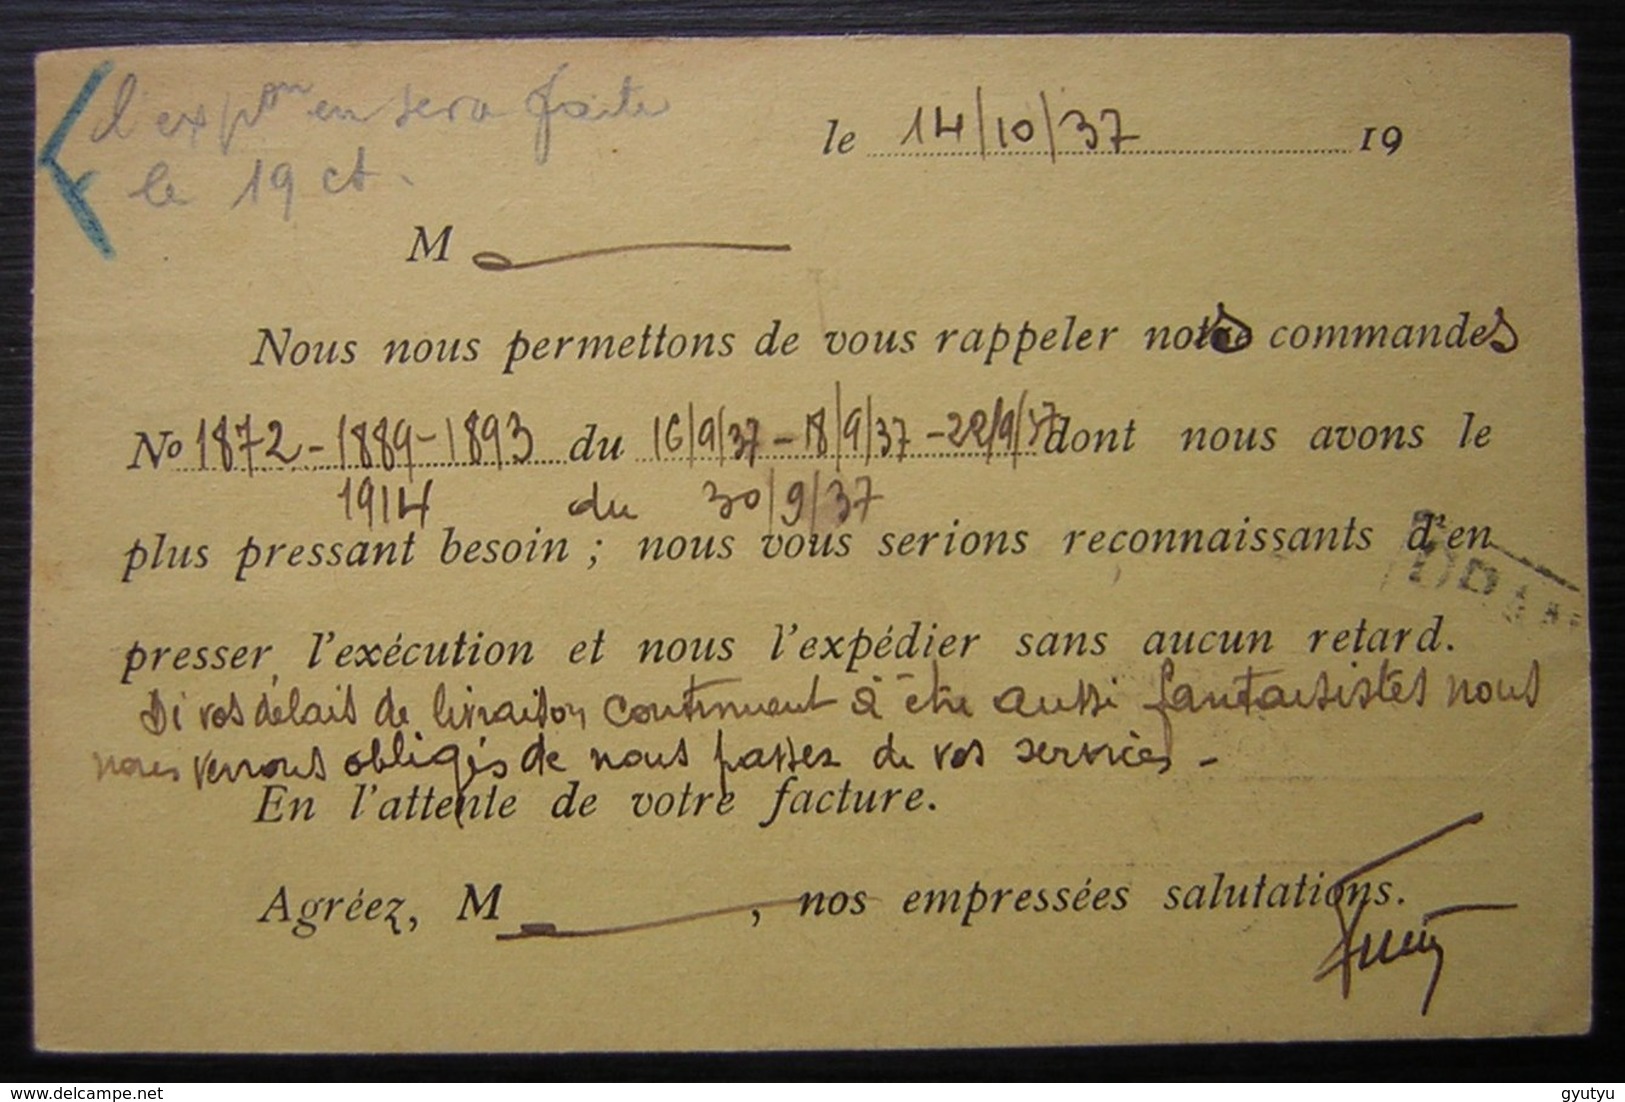 l'exp^on en sera faite
le 19 ct.
le 14/10/37 19
M
Nous nous permettons de vous rappeler nos commandes
No 1872-1889-1893 du 16/9/37-18/9/37-22/9/37 dont nous avons le
1914 du 30/9/37
plus pressant besoin ; nous vous serions reconnaissants d'en
presser l'exécution et nous l'expédier sans aucun retard.
Si vos délais de livraison continuent à être aussi fantaisistes nous
nous verrons obligés de nous passer de vos services -
En l'attente de votre facture.
Agréez, M , nos empressées salutations.
delcampe.net
gyutyu